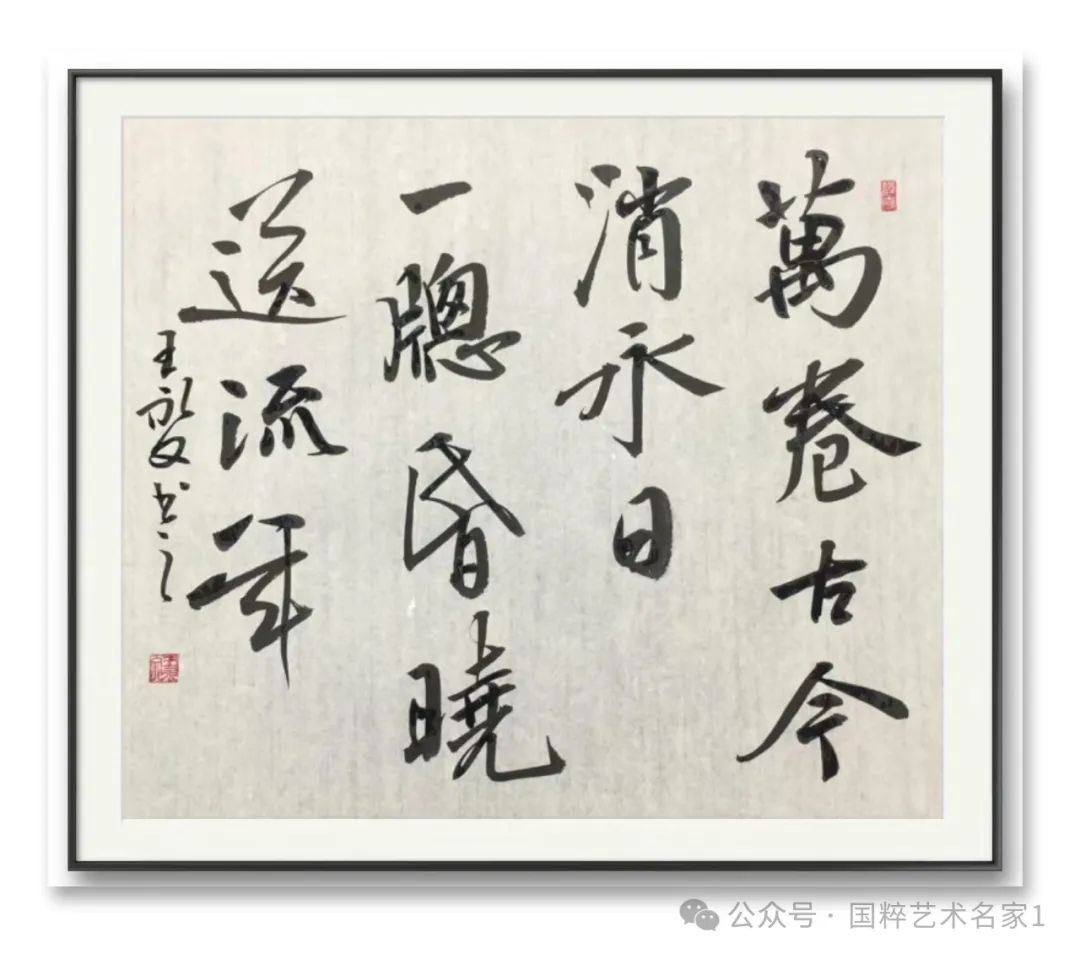 萬卷古今
消永日
一牕昏曉
送流年
王书之
公众号 · 国粹艺术名家1